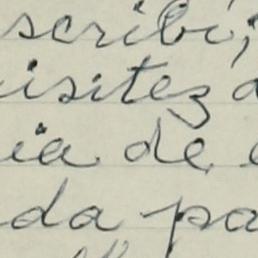 scribi;
isitez a
ia de
da pa